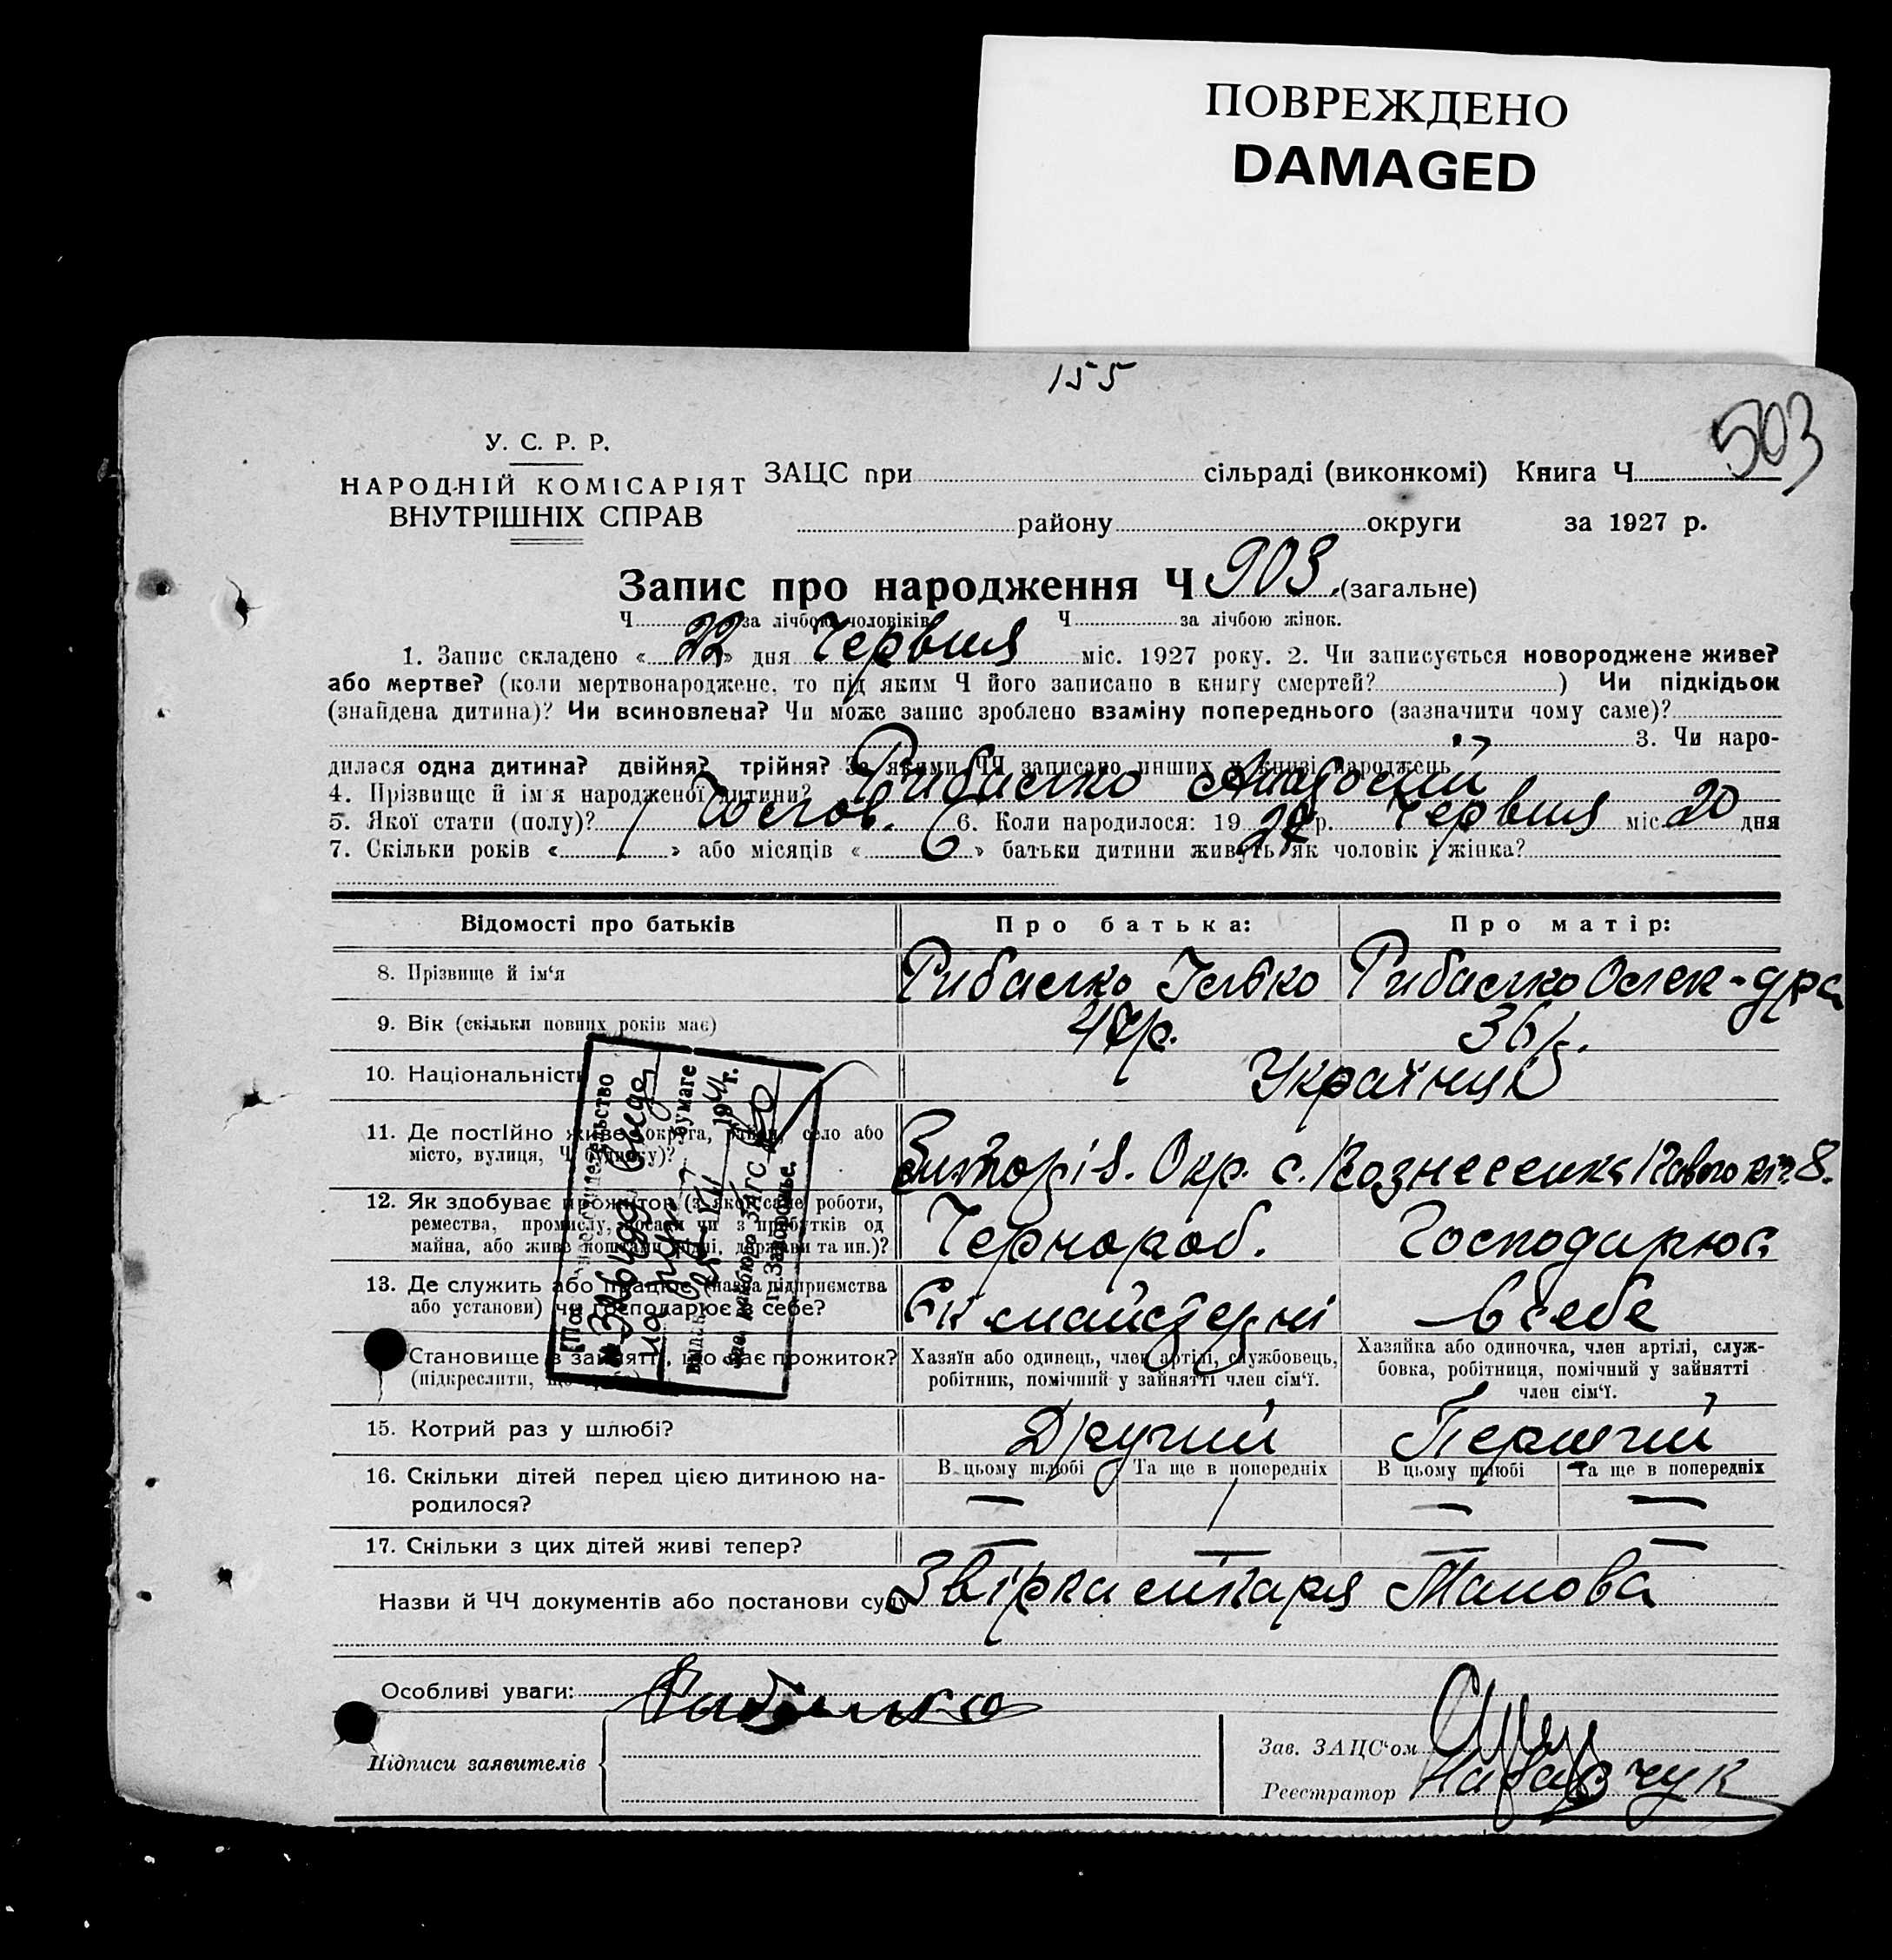 ПОВРЕЖДЕНО
DAMAGED
155
503
У. С. Р. Р.
НАРОДНІЙ КОМІСАРІЯТ
ВНУТРІШНІХ СПРАВ
ЗАЦС при сільраді (виконкомі) Книга Ч
району округи за 1927 р.
Запис про народження Ч 903 (загальне)
Ч за лічбою чоловіків Ч за лічбою жінок.
1. Запис складено « 22 » дня Червня міс. 1927 року. 2. Чи записується новороджене живе?
або мертве? (коли мертвонароджене, то під яким Ч його записано в книгу смертей? ) Чи підкідьок
(знайдена дитина)? Чи всиновлена? Чи може запис зроблено взаміну попереднього (зазначити чому саме)?
3. Чи наро-
дилася одна дитина? двійня? трійня? За якими ЧЧ записано инших у книзі народжень
4. Прізвище й ім'я народженої дитини? Рибалко
5. Якої стати (полу)? Чолов. 6. Коли народилося: 19 27 р. Червня міс. 20 дня
7. Скільки років « / » або місяців « 6 » батьки дитини живуть як чоловік і жінка?
Відомості про батьків Про батька: Про матір:
8. Прізвище й ім'я Рибалко Рибалко Олек-дра
9. Вік (скільки повних років має) р. 36 р.
10. Національність Українці
11. Де постійно живе (округа, район, село або
місто, вулиця, Ч будинку)? Окр. с. Вознесенка 8.
12. Як здобуває прожиток (з якої саме роботи,
ремества, промислу, посади чи з прибутків од
майна, або живе коштами рідні, держави та ин.)? Чернороб. Господарює
13. Де служить або працює (назва підприємства
або установи) чи господарює в себе? майстерні в себе
Становище в занятті, що дає прожиток?
(підкреслити, що треба)
Хазяїн або одинець, член артілі, службовець,
робітник, помічний у зайнятті член сім'ї.
Хазяйка або одиночка, член артілі, служ-
бовка, робітниця, помічний у зайнятті
член сім'ї.
15. Котрий раз у шлюбі? Другий Перший
16. Скільки дітей перед цією дитиною на-
родилося?
В цьому шлюбі Та ще в попередніх В цьому шлюбі Та ще в попередніх
— / — —
17. Скільки з цих дітей живі тепер? — — — —
Назви й ЧЧ документів або постанови суду Звірка лікаря
Особливі уваги:
Підписи заявителів Рибалко
Зав. ЗАЦС'ом
Реєстратор
бумаге
194 г.
ЗАГС
г. Запорожье.